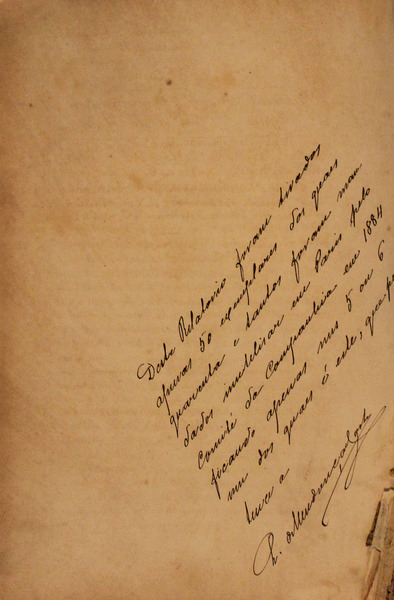 Deste Relatorio foram tirados
apenas 50 exemplares dos quaes
quarenta e tantos foram man
dados inutilisar em Paris pelo
Comité da Companhia em 1884
ficando apenas uns 5 ou 6
um dos quaes é este, que per
tence a